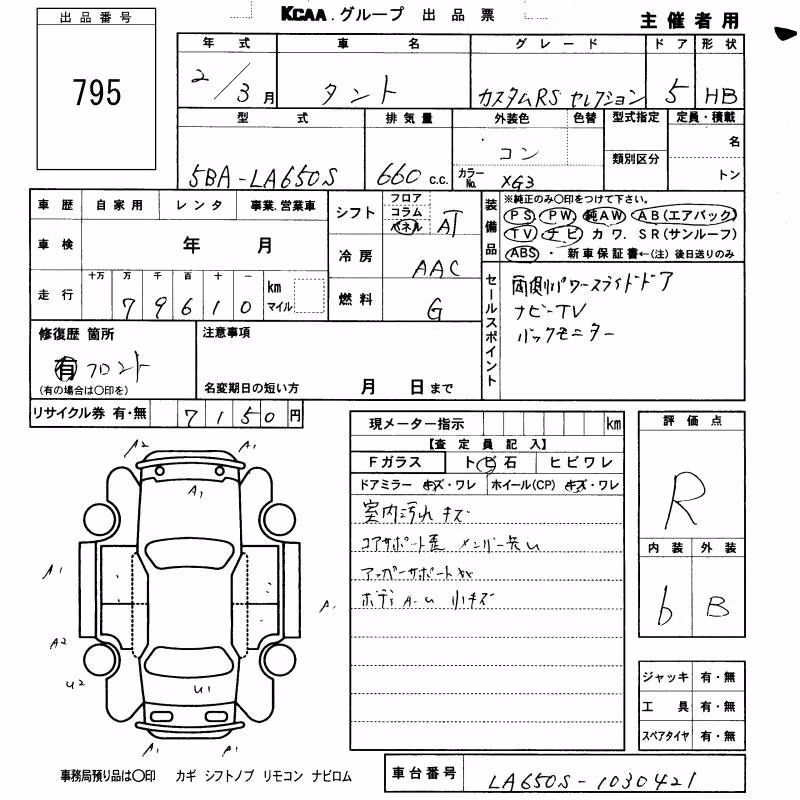 KCAA.グループ 出品票
主催者用
出品番号
795
年式 車名 グレード ドア 形状
2/3月 タント カスタムRS セレクション 5 HB
型式 排気量 外装色 色替 型式指定 定員・積載
5BA-LA650S 660 c.c. コン カラーNo. XG3 類別区分 名 トン
車歴 自家用 レンタ 事業.営業車
車検 年 月
走行 十万 万 千 百 十 一
79610 km マイル
シフト フロア コラム パネル AT
冷房 AAC
燃料 G
装備品 ※純正のみ〇印をつけて下さい。
PS PW 純AW AB(エアバック)
TV ナビ カワ. SR(サンルーフ)
ABS ・ 新車保証書←(注)後日送りのみ
セールスポイント
両側パワースライドドア
ナビーTV
バックモニター
修復歴 箇所
有 フロント
(有の場合は〇印を)
注意事項
名変期日の短い方 月 日まで
リサイクル券 有・無 7150円
現メーター指示 km
【査定員記入】
Fガラス トビ石 ヒビワレ
ドアミラー キズ・ワレ ホイール(CP) キズ・ワレ
室内汚れ キズ
コアサポート歪 メンバー
アッパーサポート
ボディA-U 小キズ
評価点
R
内装 外装
6 B
ジャッキ 有・無
工具 有・無
スペアタイヤ 有・無
A2 A1
A1
A1
A1
A2
U2 U1
A1 A1
事務局預り品は〇印 カギ シフトノブ リモコン ナビロム
車台番号 LA650S-1030421